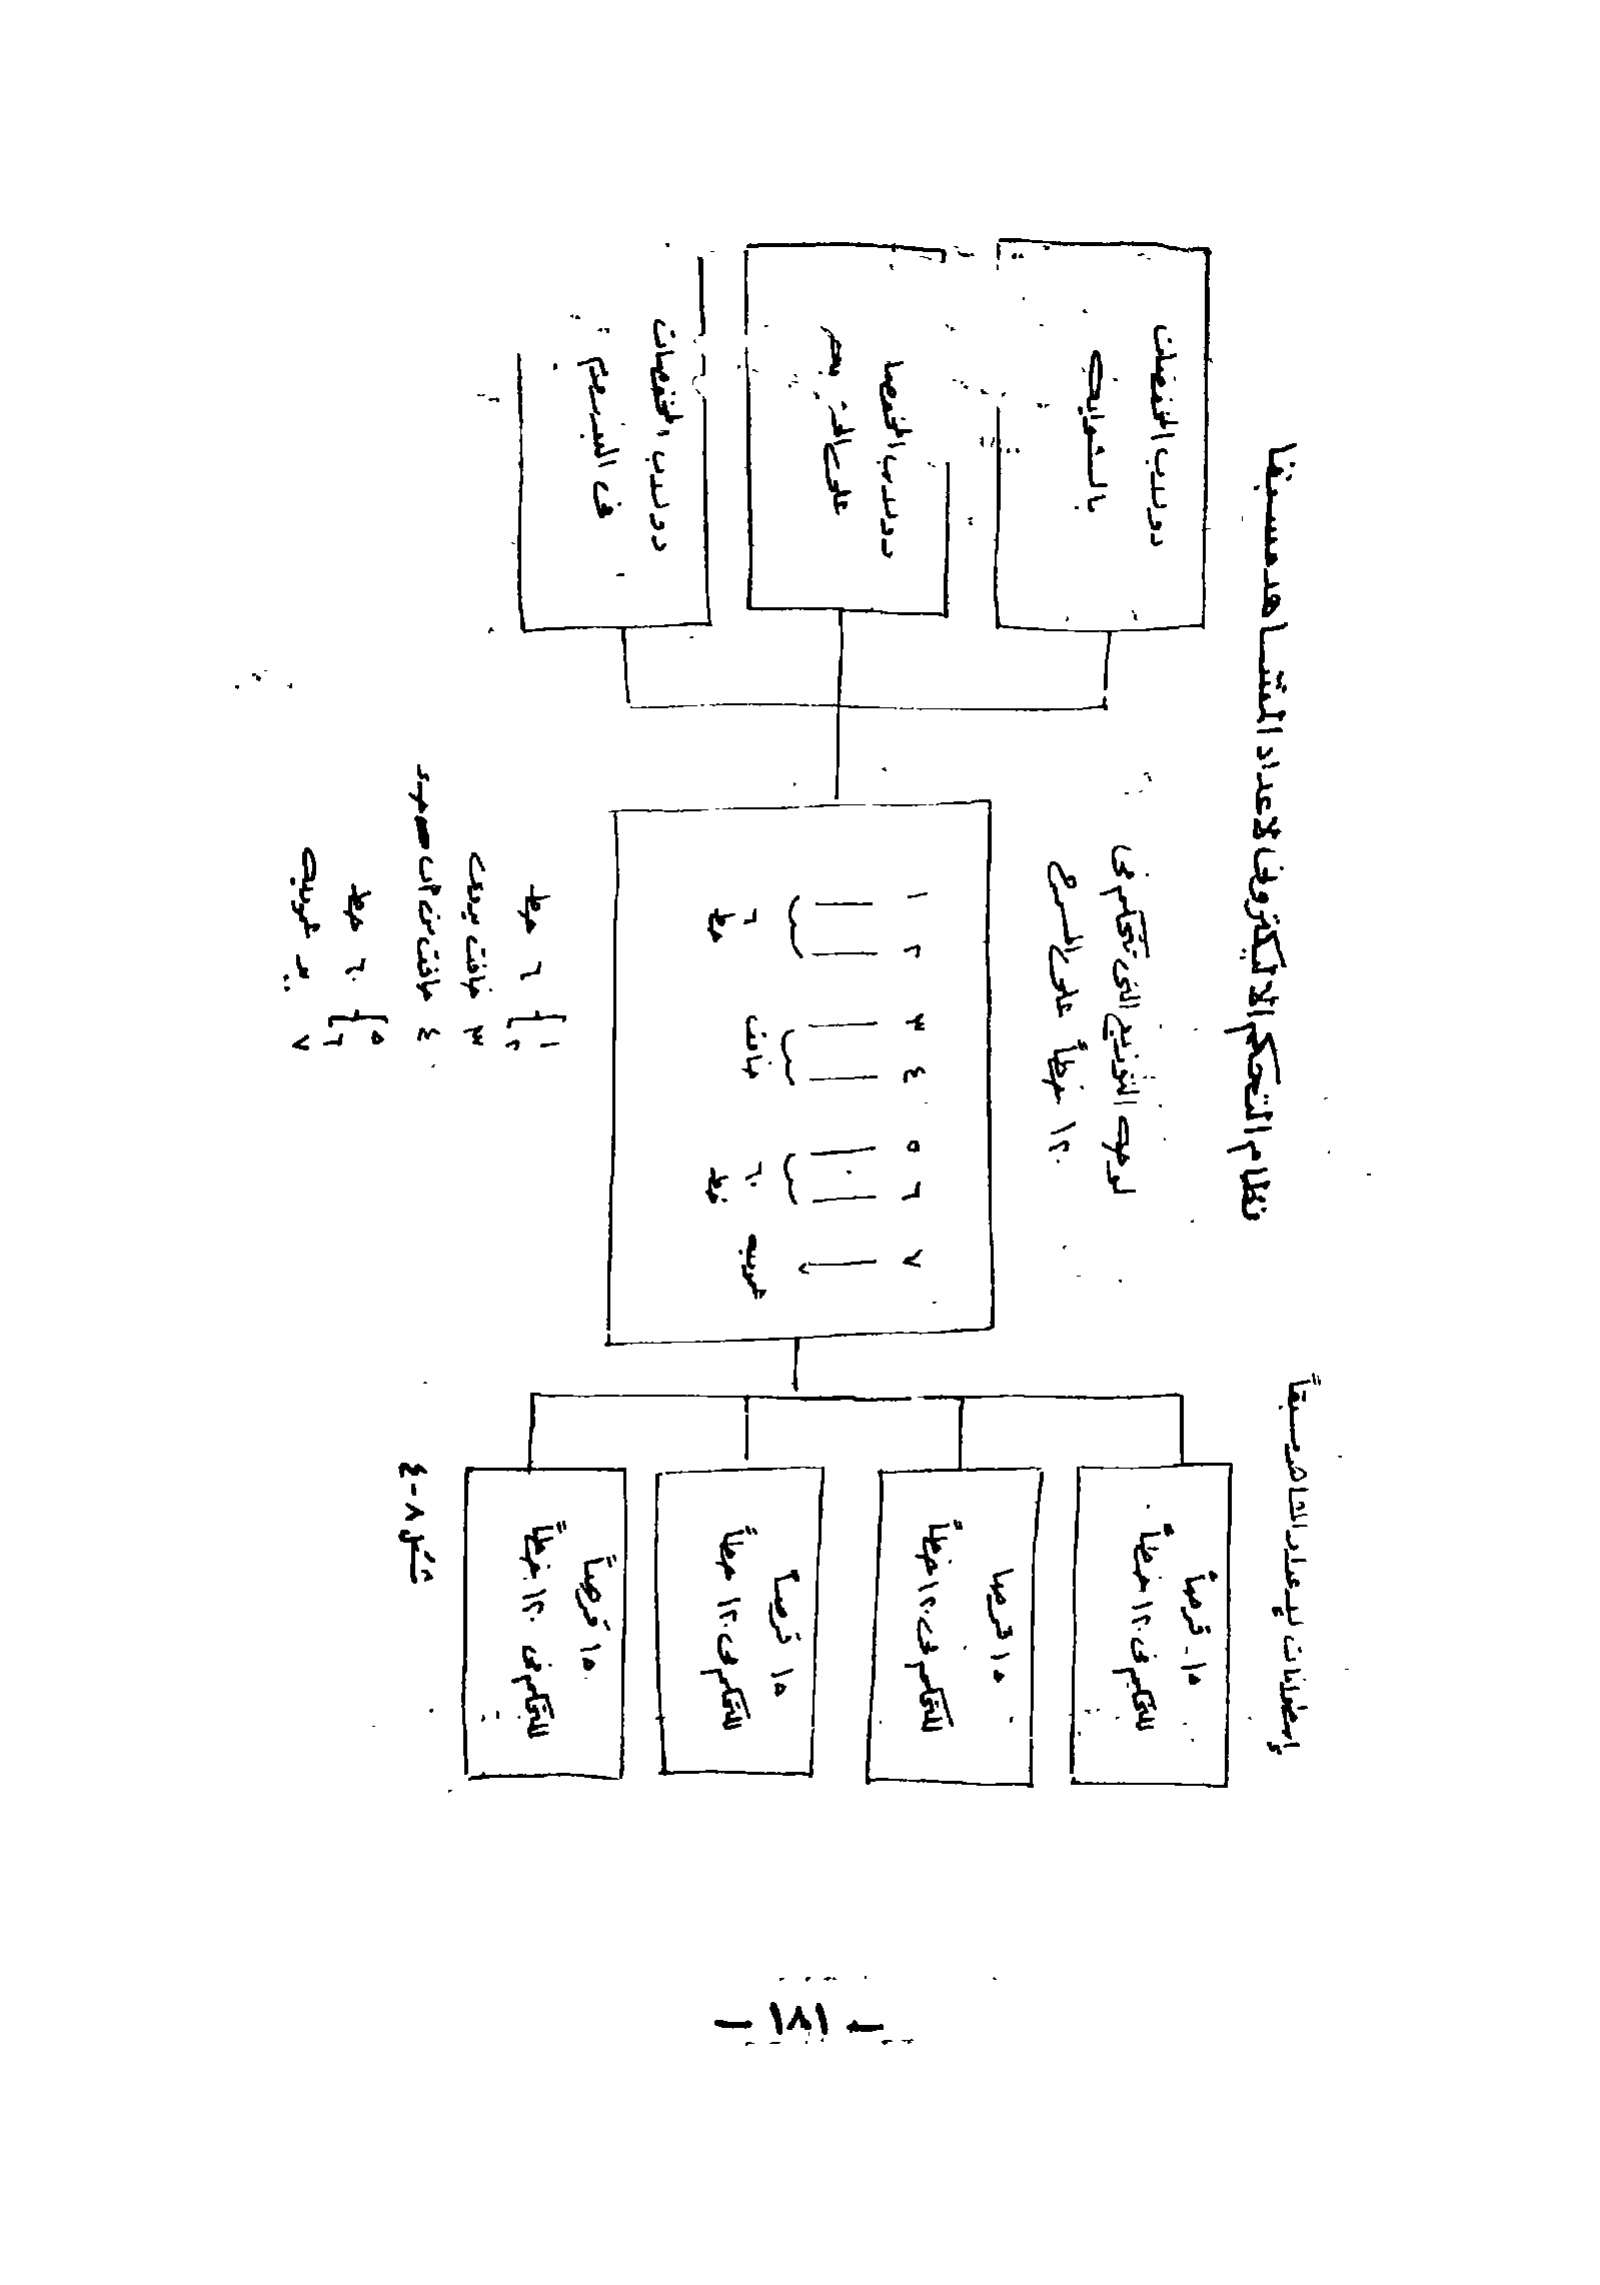 نظام التحكم الالكترونى لاعداد المشاهد مسبقا
إسطوانات لإعداد المشاهد مسبقاً
١٥ قرصاً
للتحكم فى ١٢٠ خطاً
١٥ قرصا
للتحكم فى ١٢٠ خطاً
١٥ قرصاً
للتحكم فى ١٢٠ خطاً
١٥ قرصاً
للتحكم فى ١٢٠ خطاً
لوحة التوزيع التى تتحكم فى
١٢٠ خطاً على المسرح
١
٢
٦
خط
٣
٤
خافت
٥
٦
٦٠
خط
٧
عمومية
دولاب المخفضات
بالشواية
دولاب المخفضا
على
دولاب المخفضات
فى البدروم
١
٢
٦ خط
٣ خافت يدوى
٤ خافت
٥
٦
٦٠ خط
٧ يد عمومية
شكل ٨-٤
— ١٨١ —